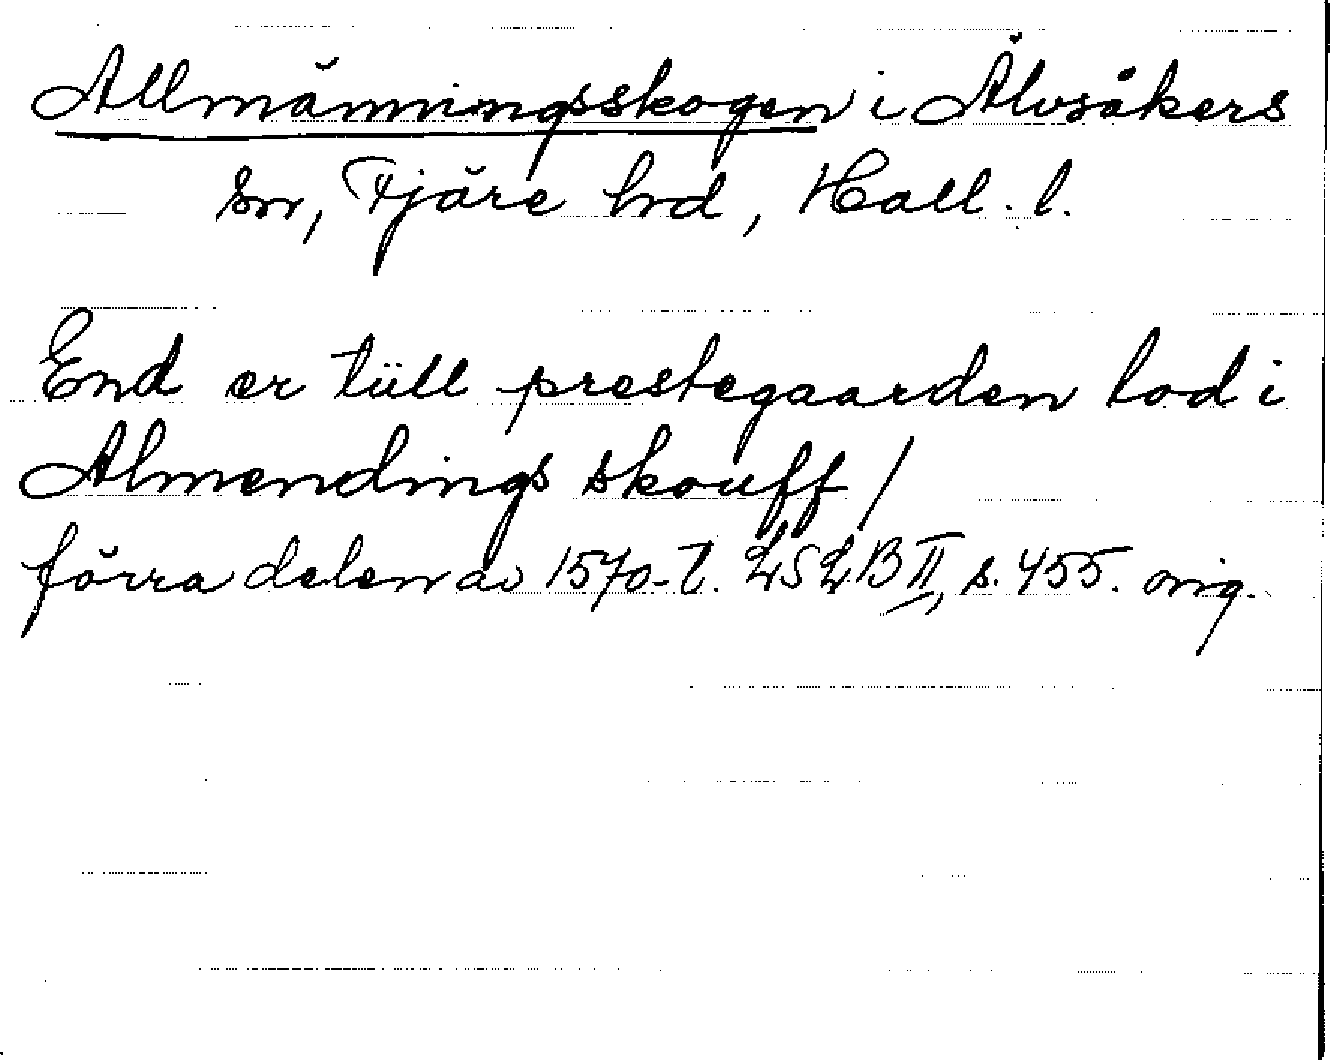 Allmänningsskogen i Älvsåkers
sn, Fjäre hd, Hall. l.
End er tüll prestegaarden lod i
Almendings skouff /
förra delen av 1570-t. LSLB II, s. 455. orig.